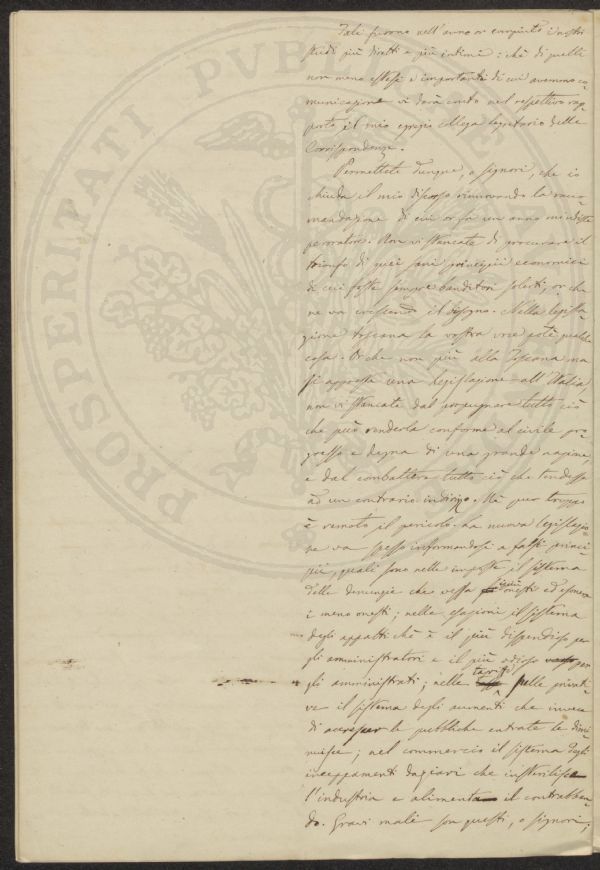 Tali furono nell'anno or compiuto i nostri
studi più diretti e più intimi: chè di quelli
non meno estesi e importanti di cui avemmo co-
municazione vi darà conto nel respettivo rap-
porto il mio egregio collega Segretario delle
Corrispondenze.
Permettete dunque, o signori, che io
chiuda il mio discorso rinnovando la racco-
mandazione di cui or fa un anno mi udiste
peroratore. Non vi stancate di procurare il
trionfo di quei sani principii economici
di cui foste sempre banditori solerti, or che
ne va crescendo il bisogno. Nella legisla-
zione toscana la vostra voce potè qualche
cosa. Or che non più alla Toscana ma
si appresta una legislazione all'Italia
non vi stancate dal propugnare tutto ciò
che può renderla conforme al civile pro-
gresso e degna di una grande nazione,
e dal combattere tutto ciò che tendesse
ad un contrario indirizzo. Nè pur troppo
è remoto il pericolo. La nuova legislazio-
ne va spesso informandosi a falsi princi-
pii, quali sono nelle imposte il sistema
delle denunzie che vessa i più onesti ed esonera
i meno onesti; nelle esazioni il sistema
degli appalti che è il più dispendioso per
gli amministratori e il più odioso per
gli amministrati; nelle tariffe delle privati-
ve il sistema degli aumenti che invece
di accrescer le pubbliche entrate le dimi-
nuisce; nel commercio il sistema degli
inceppamenti daziari che insterilisce
l'industria e alimenta il contrabban-
do. Gravi mali son questi, o signori;
PROSPERITATI PUBLICAE